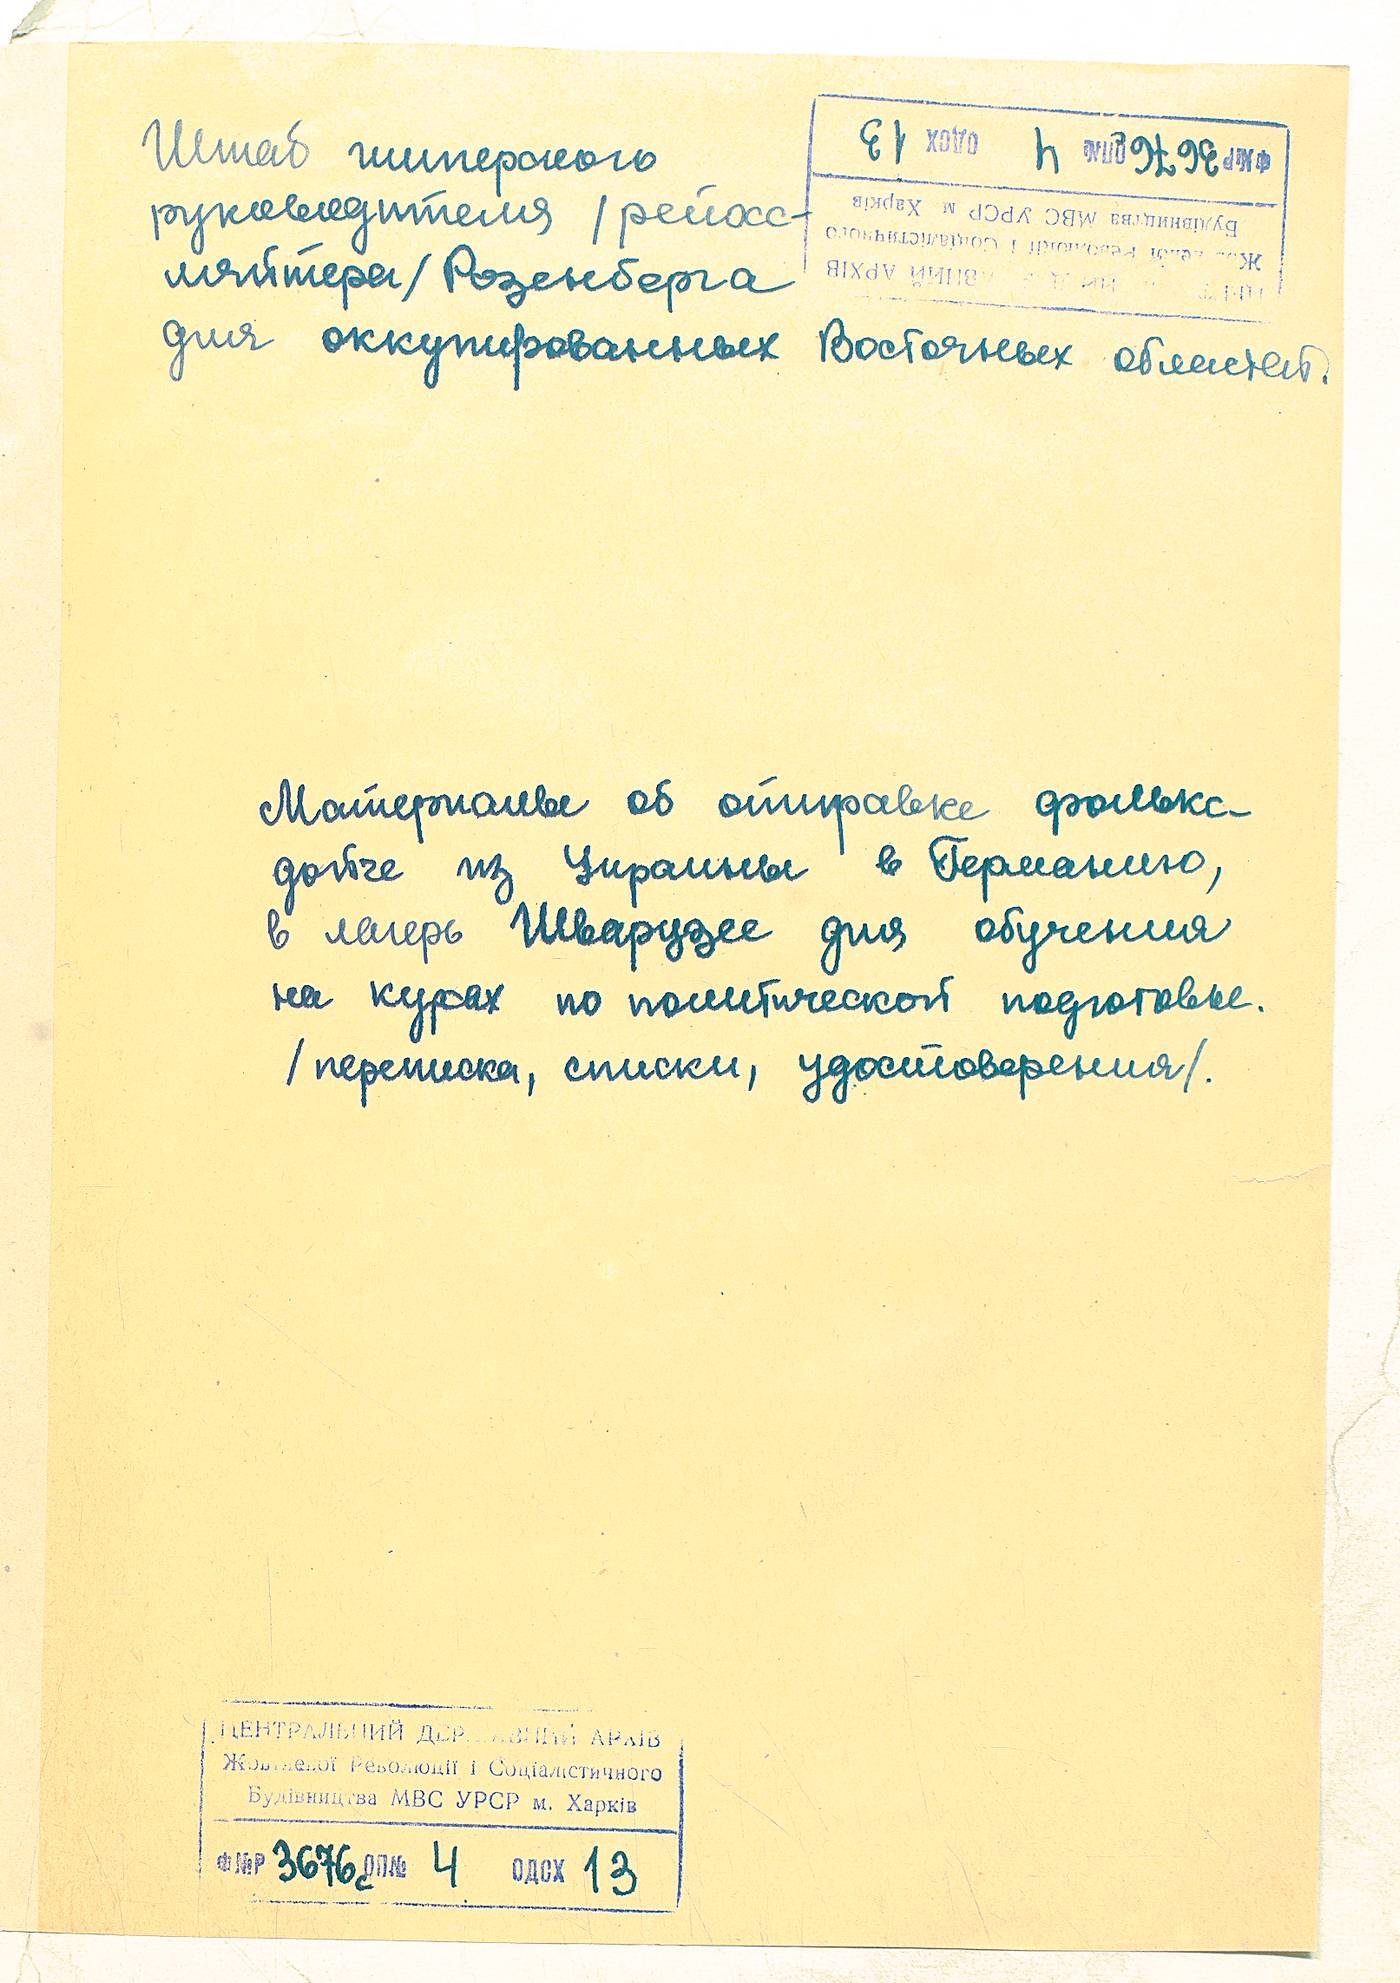 Штаб имперского
руководителя /рейхс-
ляйтера/ Розенберга
для оккупированных Восточных областей.
Ф№Р 3676с ОП№ 4 ОДСХ 13
Будівництва МВС УРСР м Харків
Жовтневої Революції і Соціалістичного
АРХІВ
Материалы об отправке фолькс-
дойче из Украины в Германию,
в лагерь Шварцзее для обучения
на курсах по политической подготовке.
/переписка, списки, удостоверения/.
ЦЕНТРАЛЬНИЙ ДЕРЖАВНИЙ АРХІВ
Жовтневої Революції і Соціалістичного
Будівництва МВС УРСР м. Харків
Ф№Р 3676с ОП№ 4 ОДСХ 13